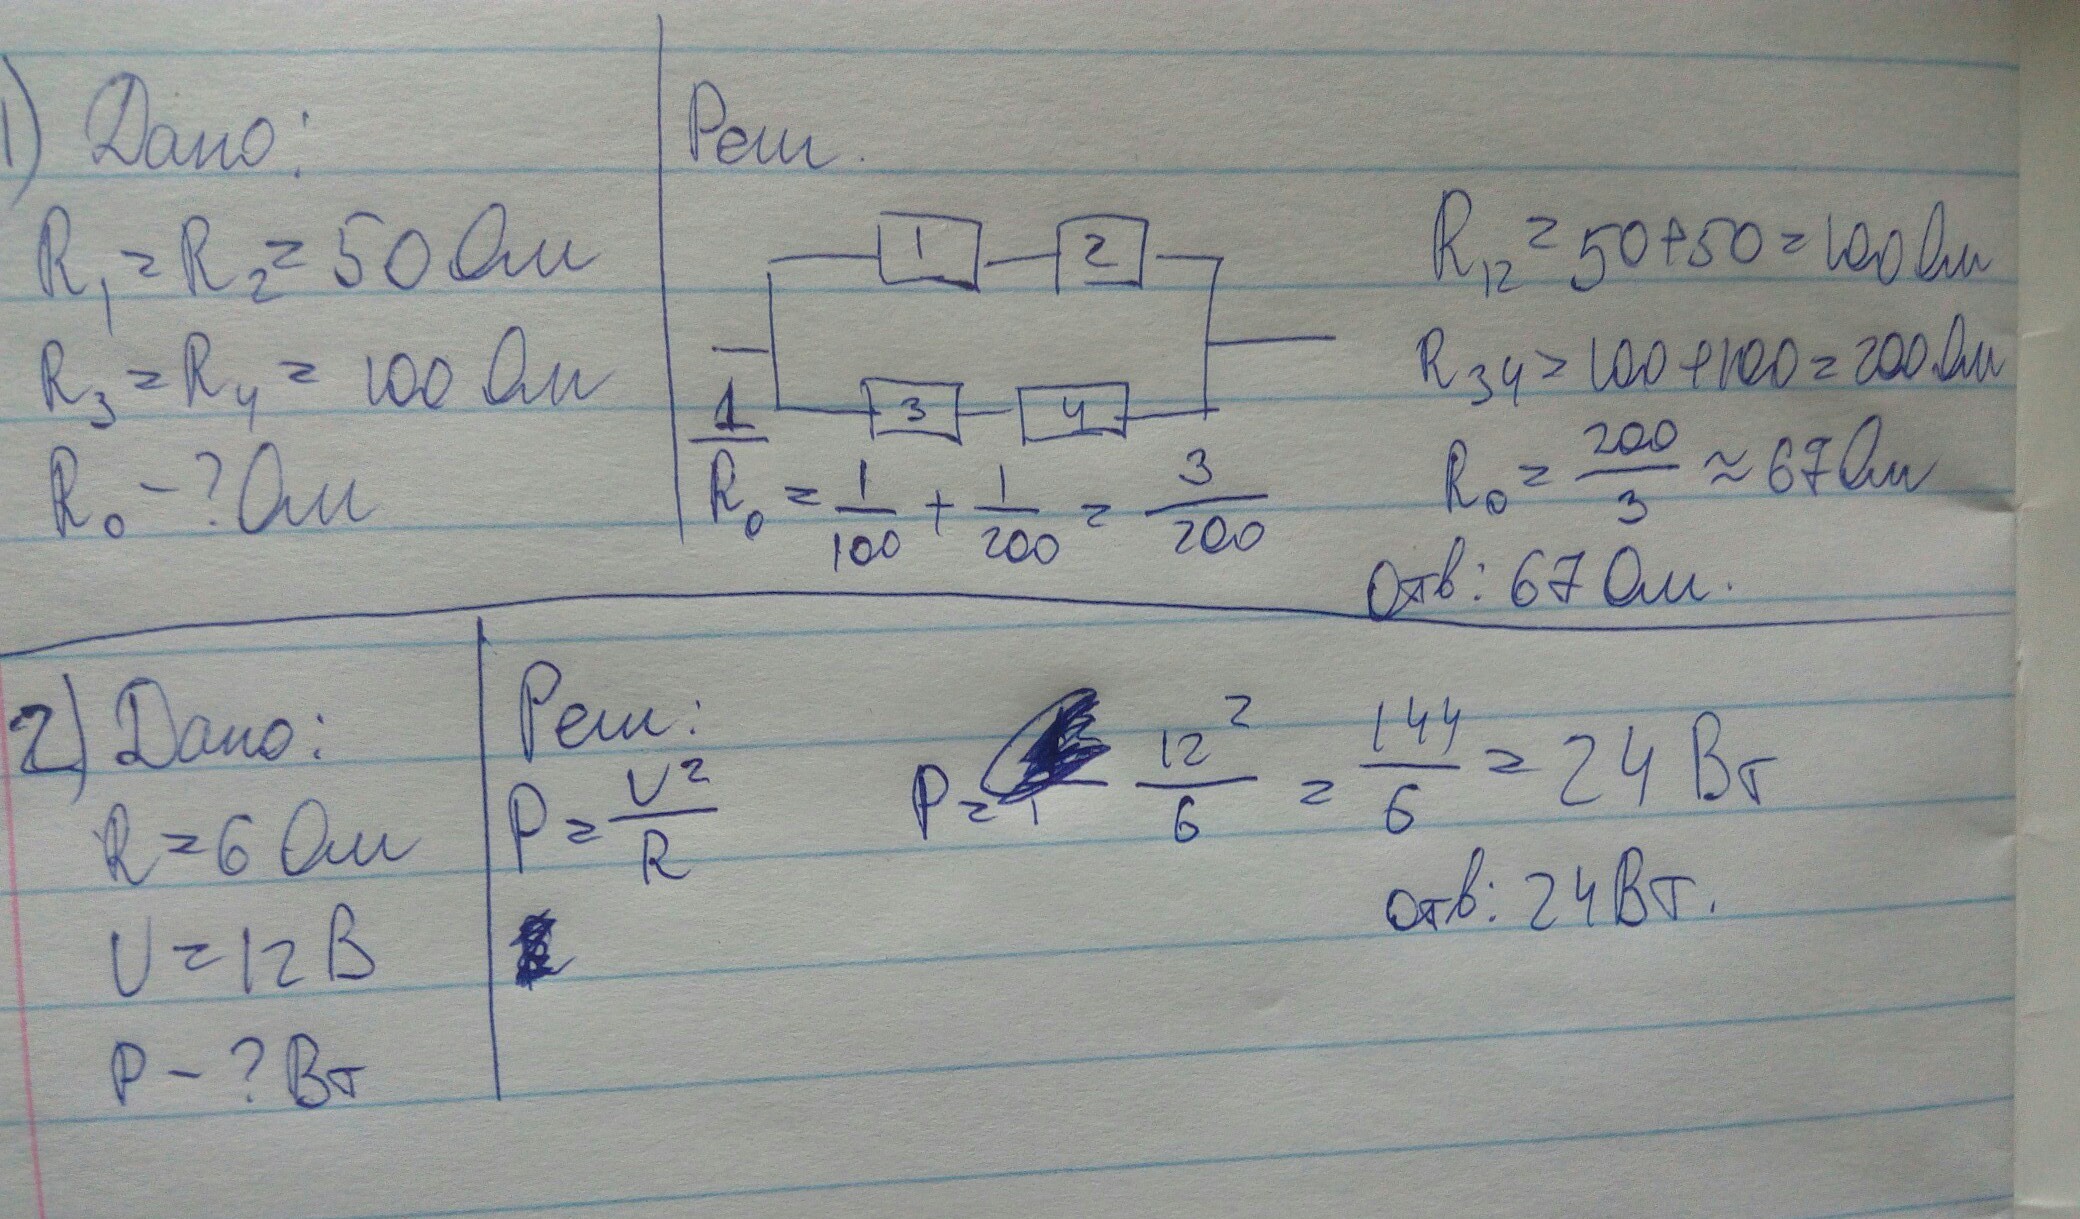 1) Дано:
R₁ = R₂ = 50 Ом
R₃ = R₄ = 100 Ом
R₀ - ? Ом
Реш.
1 2
3 4
1/R₀ = 1/100 + 1/200 = 3/200
R₁₂ = 50+50 = 100 Ом
R₃₄ = 100+100 = 200 Ом
R₀ = 200/3 ≈ 67 Ом
Отв: 67 Ом.
2) Дано:
R = 6 Ом
U = 12 В
P - ? Вт
Реш:
P = U²/R
P = 12²/6 = 144/6 = 24 Вт
Отв: 24 Вт.